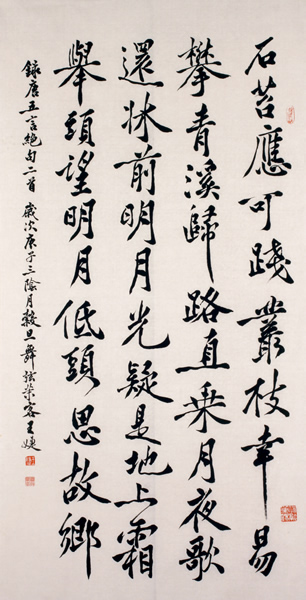 石苔應可踐叢枝幸易
攀青溪歸路直乘月夜歌
還牀前明月光疑是地上霜
舉頭望明月低頭思故鄉
錄唐五言絕句二首 歲次庚子三陰月穀旦舞弦樂客王